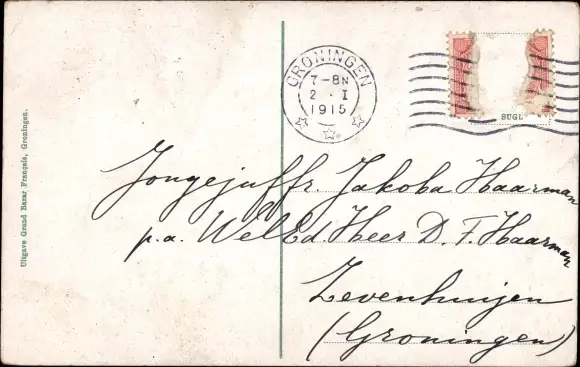 GRONINGEN
7-8N
2 . I
1915
SUGL
Jongejuffr. Jakoba Haarman
p.a. WelEd Heer D. F. Haarman
Zevenhuizen
(Groningen)
Uitgave Grand Bazar Français, Groningen.